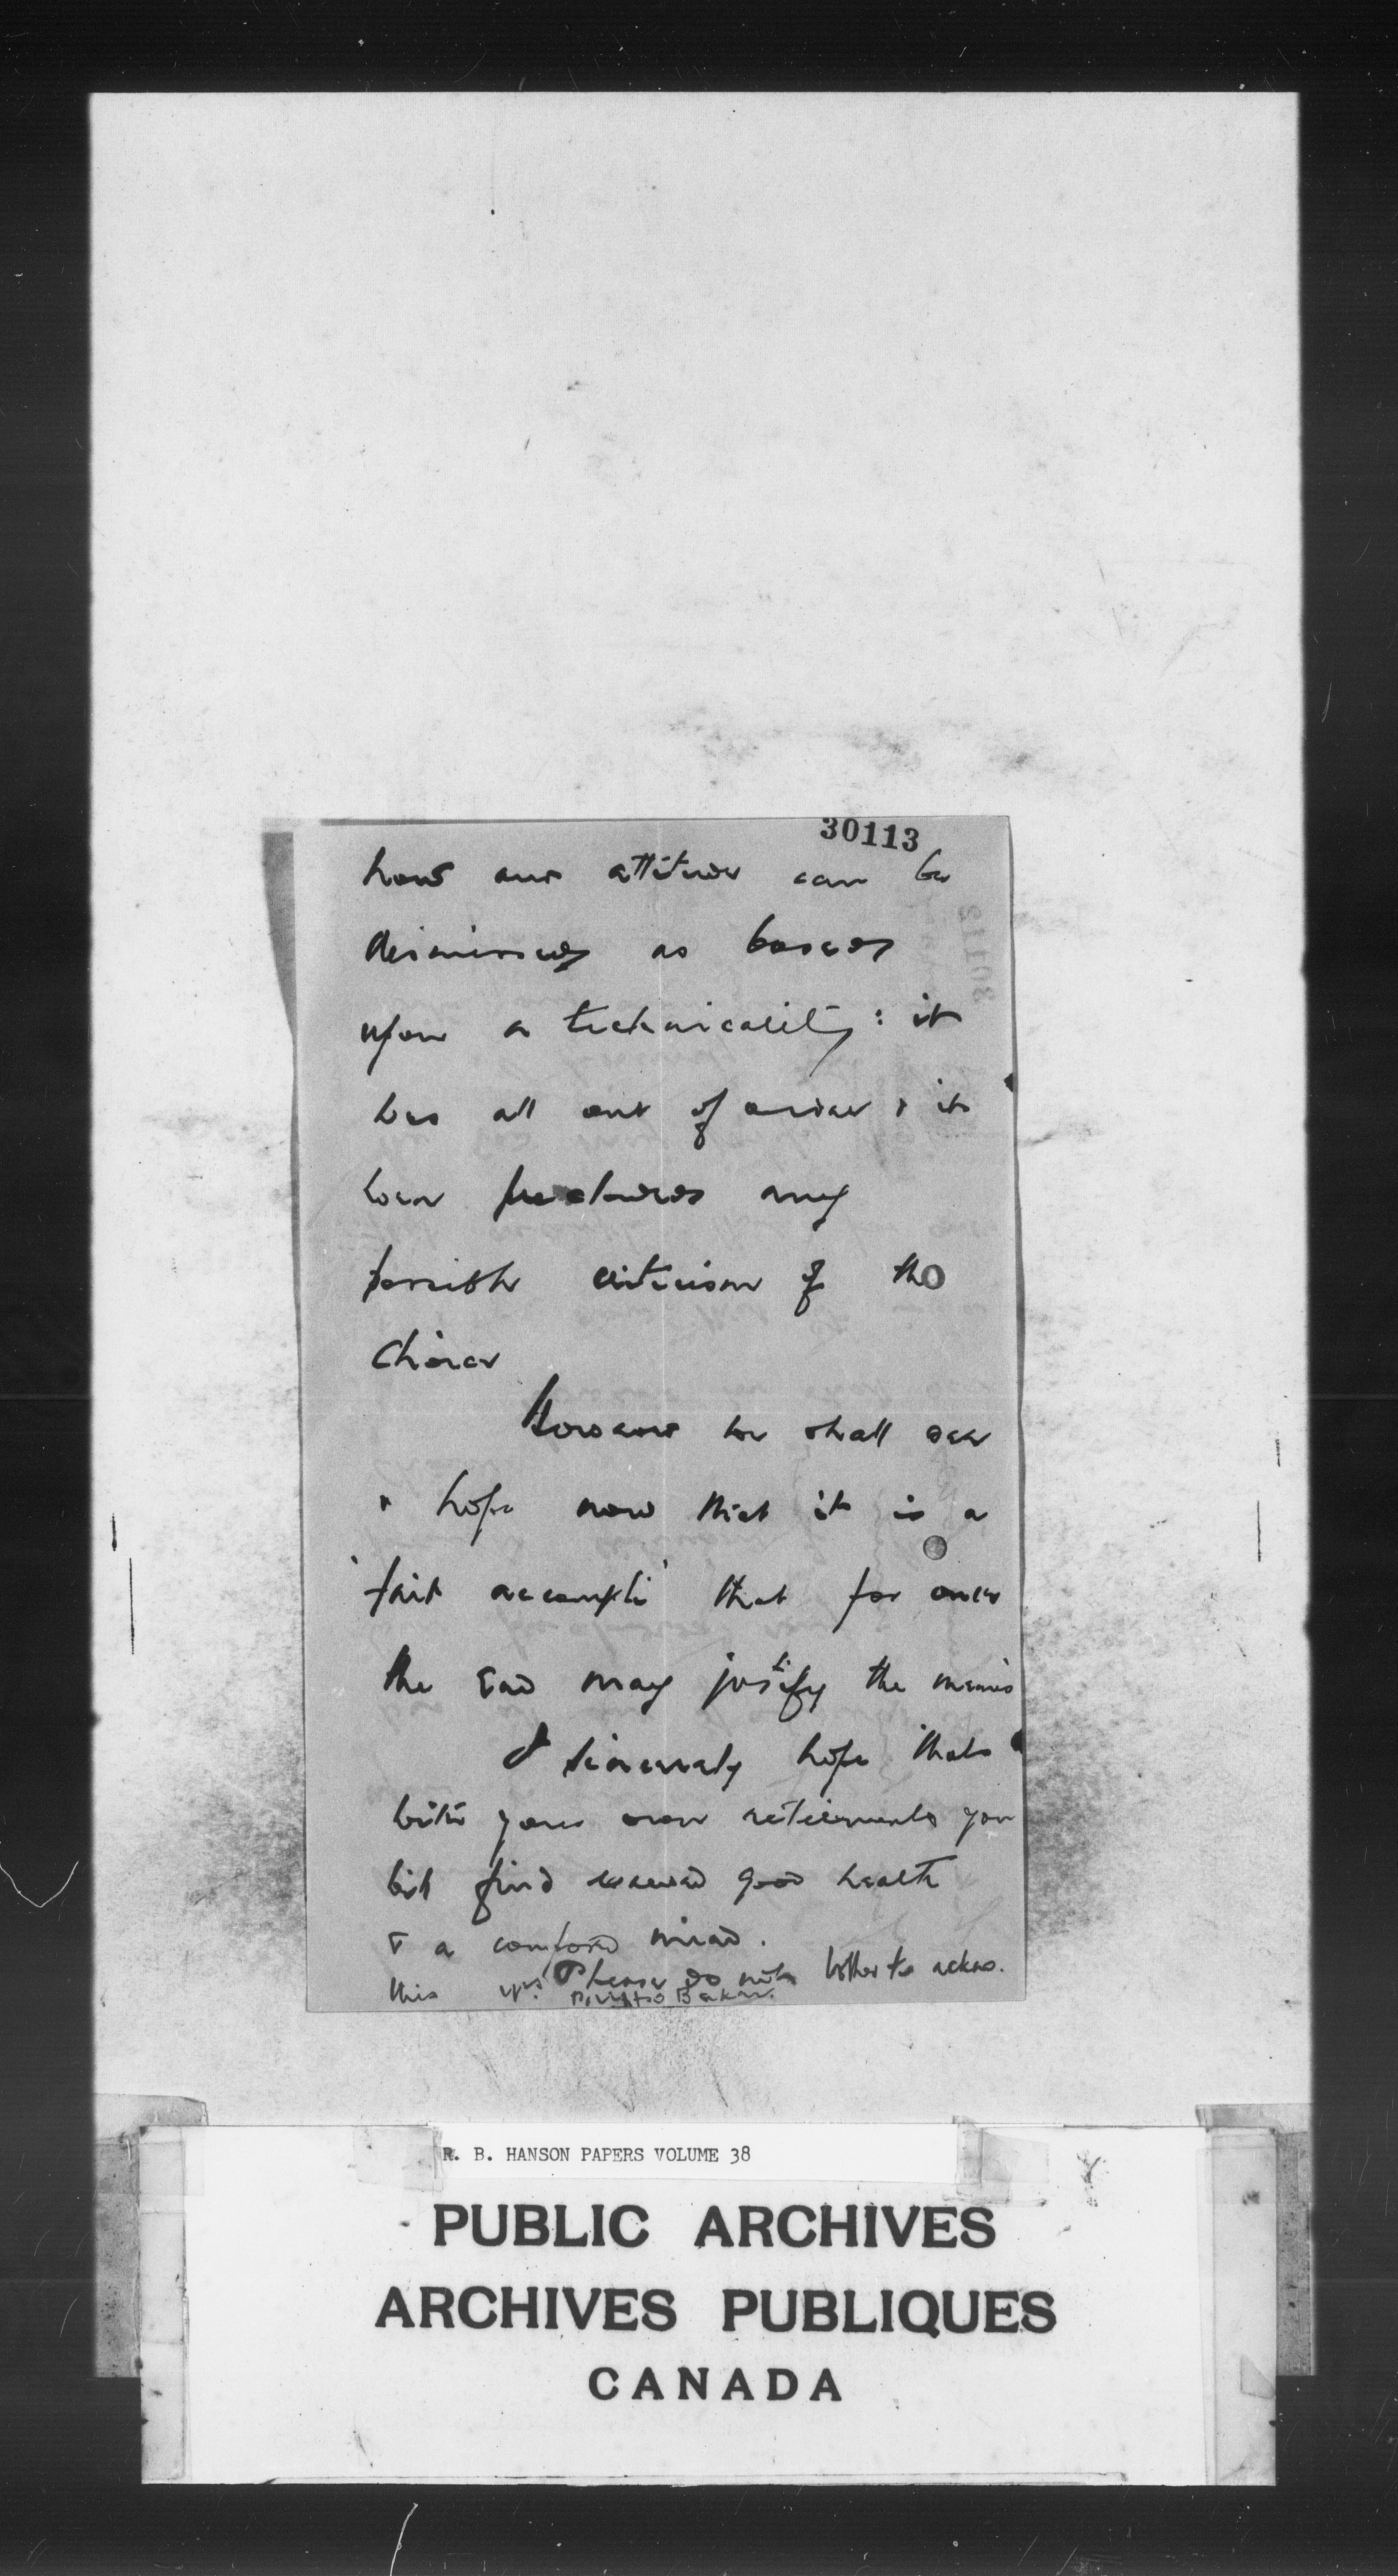 30113
how our attitude can be
dismissed as based
upon a technicality : it
was all out of order & it
was any
possible criticism of the
Choice
However we shall see
& hope now that it is a
'fait accompli' that for once
the End may justify the means
I sincerely hope that
with your own retirement you
will find renewed good health
& a comfort mind.
Please do not bother to ackno.
this yrs.
R. B. HANSON PAPERS VOLUME 38
PUBLIC ARCHIVES
ARCHIVES PUBLIQUES
CANADA